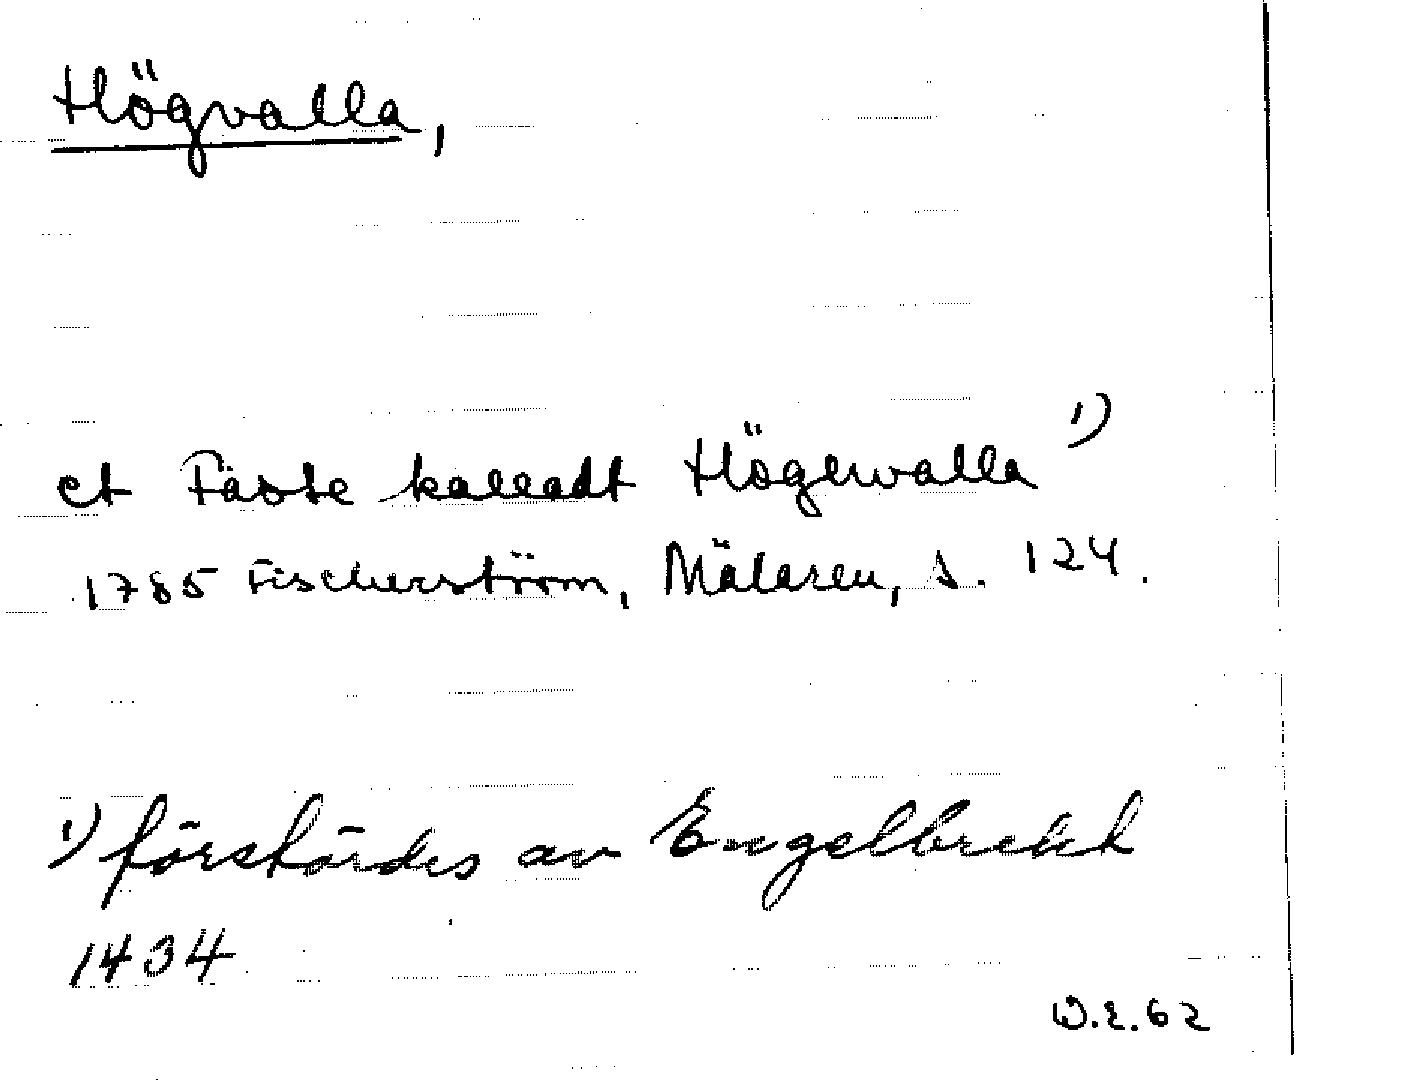 Högvalla,
et Fäste kalladt Högerwalla 1)
1785 Fischerström, Mälaren, s. 124.
1) förstördes av Engelbrekt
1434
W.E.62